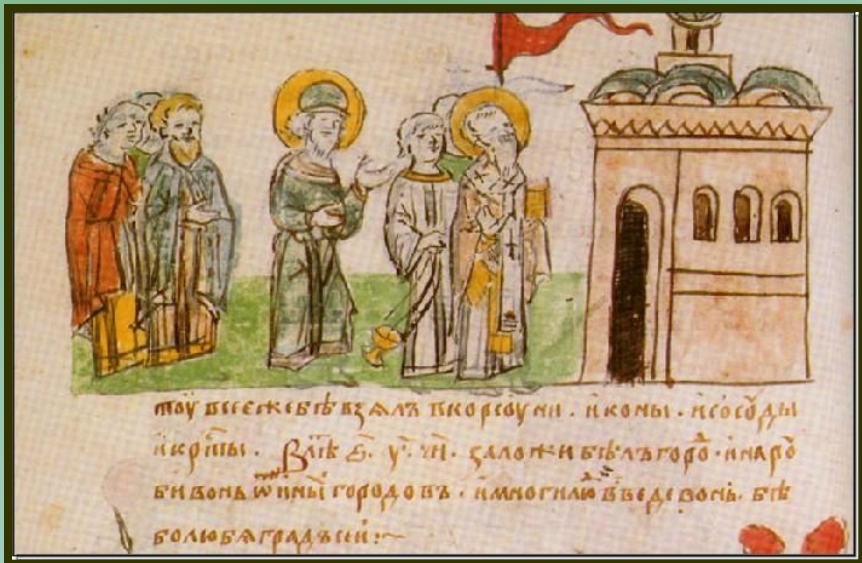 тоу все еже бѣ взялъ в корсоуни · иконы · и сосоуды
и крⷭ҇ты · В лѣⷮ ҂ѕ҃ · у҃ · ч҃ · заложи бѣлъгороⷣ · и наро
би в онь ѿ инѣⷯ городовъ · и многи люⷣ въведе в онь · бѣ
бо любя градъ сеи :~